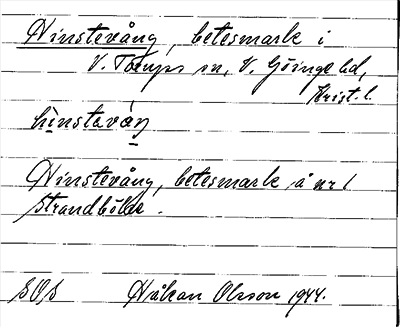 Hinstevång, betesmark i
V. Torups sn, V. Göinge hd,
Krist. l.
hinstavåŋ
Hinstevång, betesmark å nr 1
Strandböke.
SOS Håkan Olsson 1944.